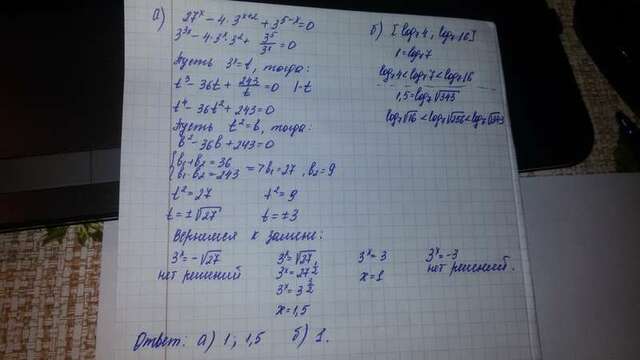 а) 27ˣ - 4·3ˣ⁺² + 3⁵⁻ˣ = 0
3³ˣ - 4·3ˣ·3² + 3⁵/3ˣ = 0
Пусть 3ˣ = t, тогда:
t³ - 36t + 243/t = 0 |·t
t⁴ - 36t² + 243 = 0
Пусть t² = b, тогда:
b² - 36b + 243 = 0
{b₁+b₂ = 36
{b₁·b₂ = 243 => b₁ = 27, b₂ = 9
t² = 27 t² = 9
t = ±√27 t = ±3
Вернемся к замене:
3ˣ = -√27 3ˣ = √27 3ˣ = 3 3ˣ = -3
нет решений 3ˣ = 27^½ x = 1 нет решений.
3ˣ = 3^(3/2)
x = 1,5
Ответ: а) 1; 1,5 б) 1.
б) [log₇4, log₇16]
1 = log₇7
log₇4 < log₇7 < log₇16
1,5 = log₇√343
log₇√16 < log₇√256 < log₇√343